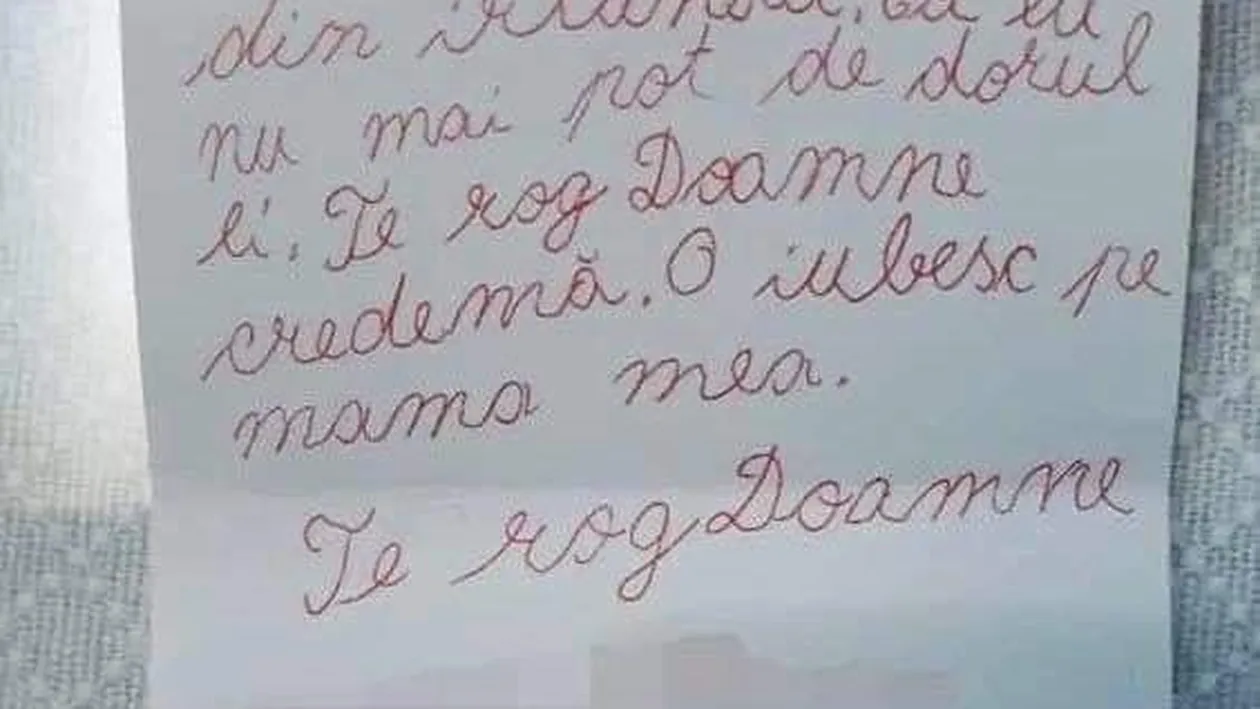 din irlanda. Că eu
nu mai pot de dorul
ei. Te rog Doamne
credemă. O iubesc pe
mama mea.
Te rog Doamne